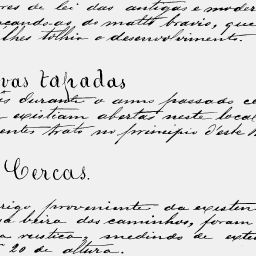 ores de lei das antigas e moder
ocando-as, do matto bravio, que
lhes tolhia o desenvolvimento.
vas tapadas
s durante o anno passado ce
existiam abertas neste local
entes trato no principio d'este
Cercas.
rigo, proveniente da existen
á beira dos caminhos, foram
a rustica, medindo de exte
20 de altura.